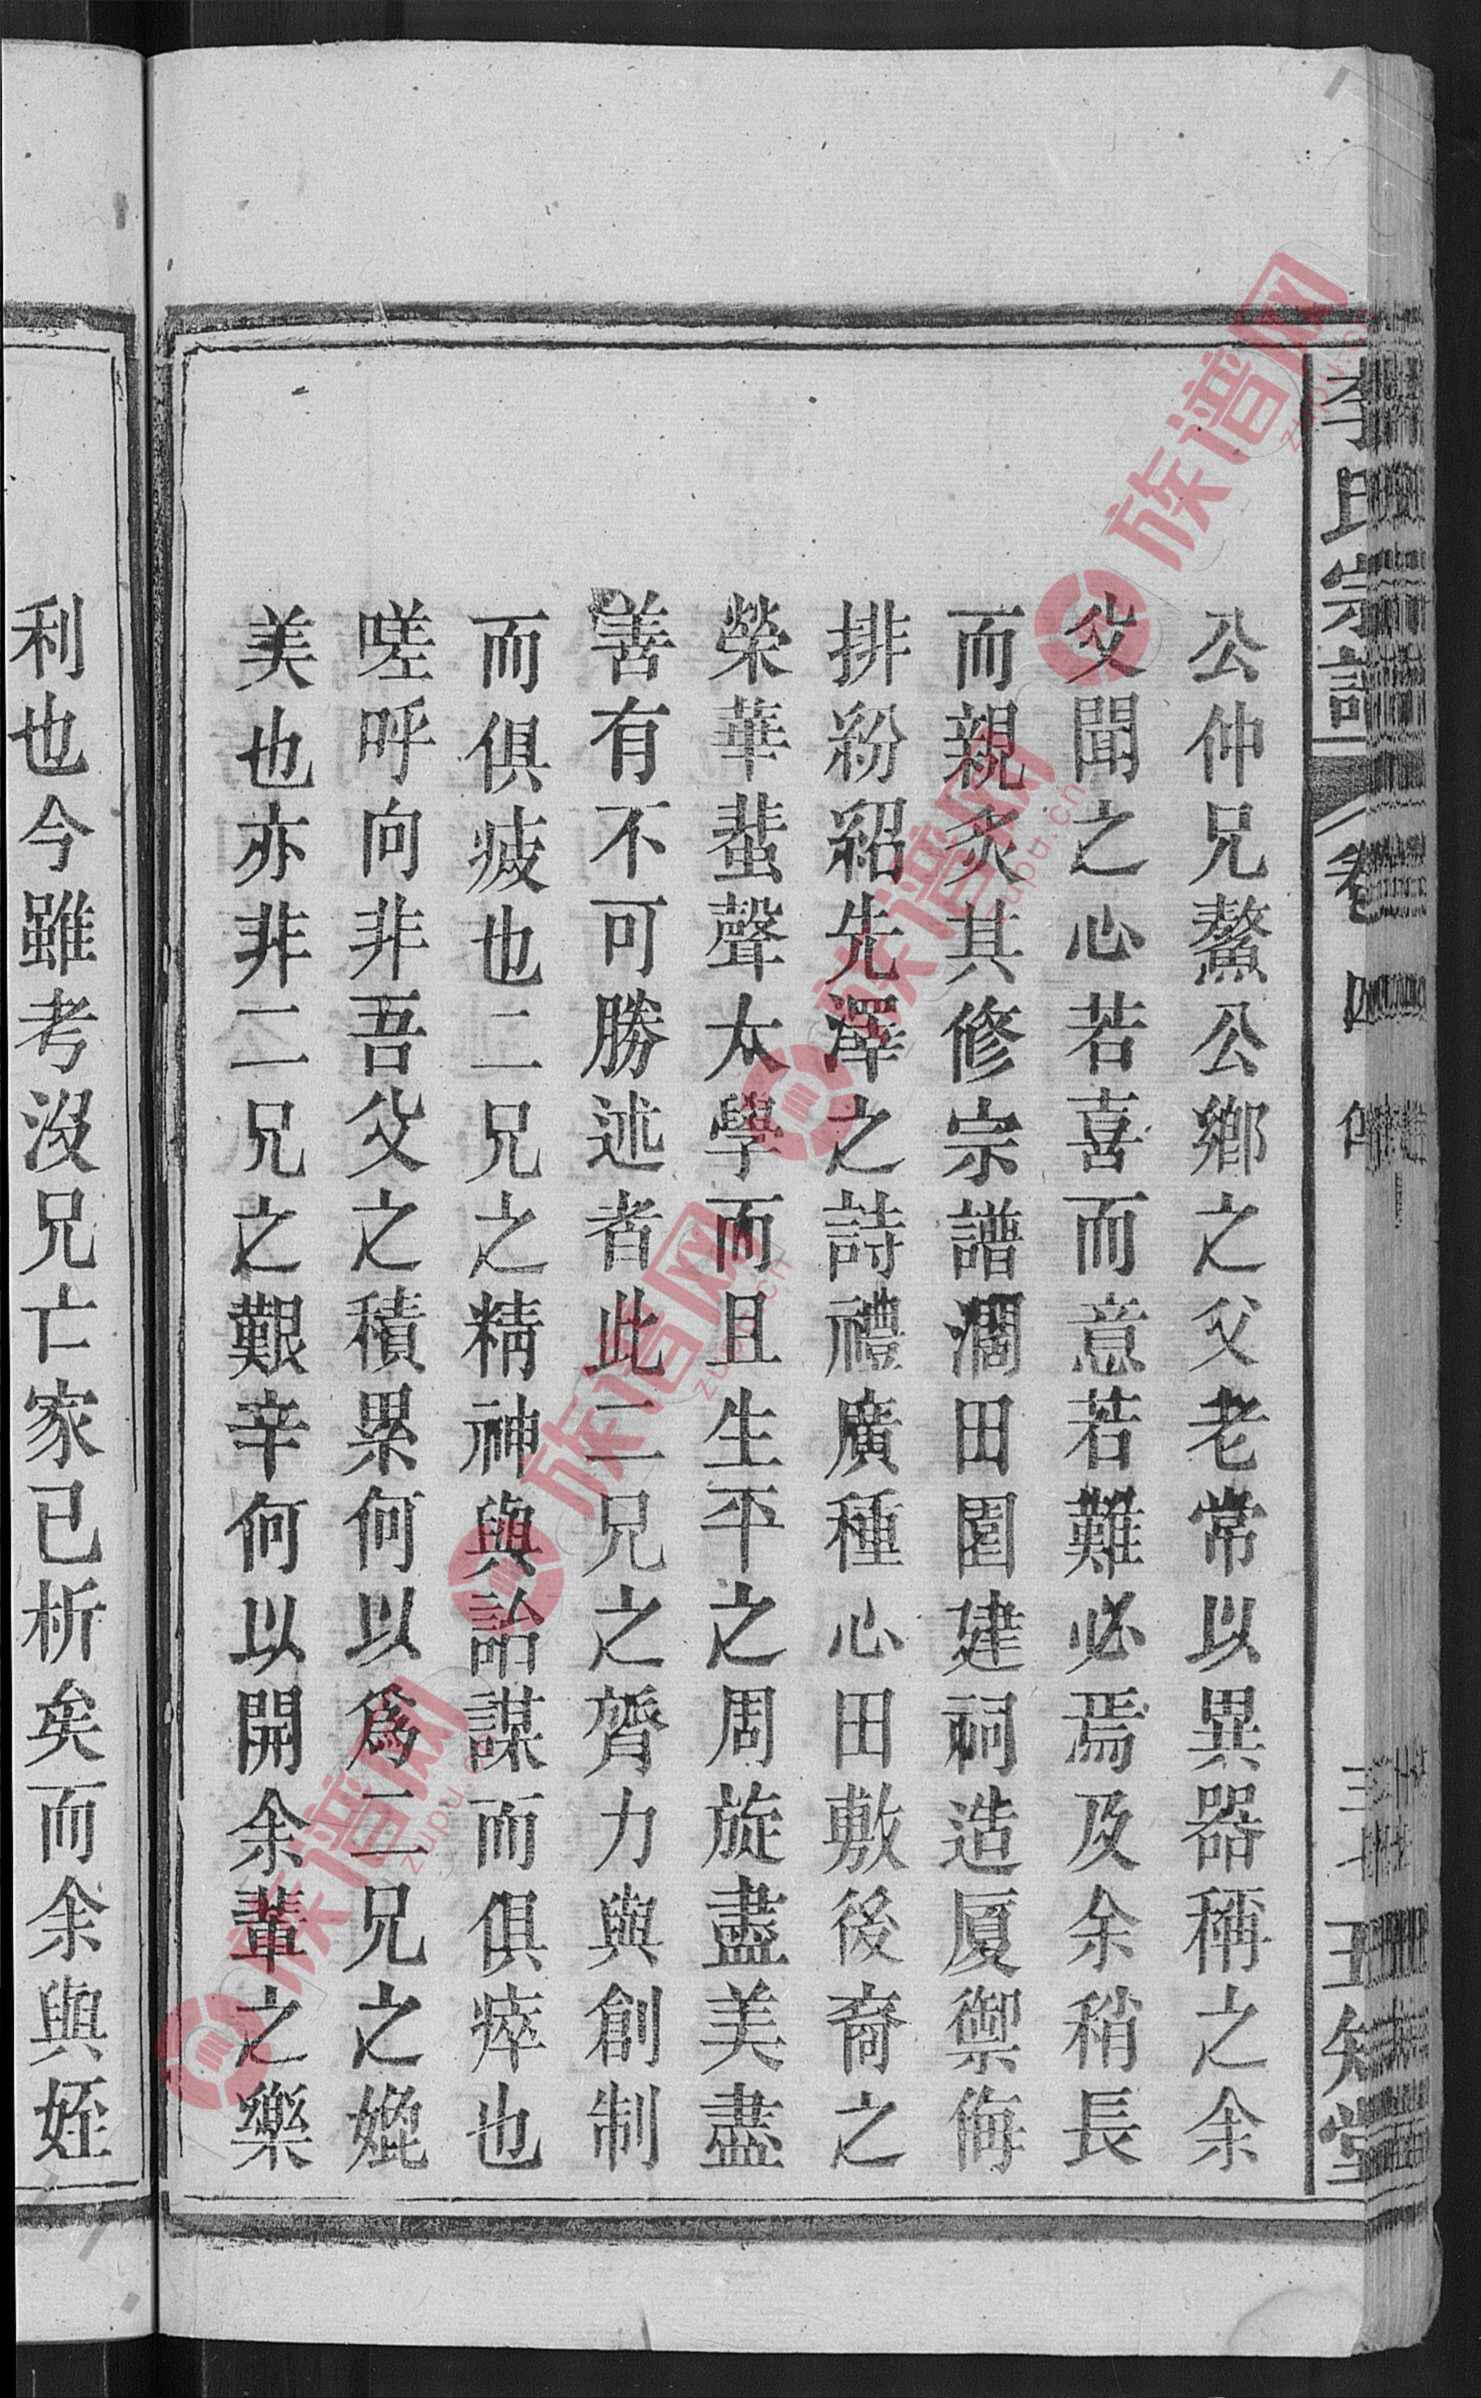 李氏宗譜 卷四 三七 王知堂
公仲兄鰲公鄉之父老常以異器稱之余
父聞之心若喜而意若難必焉及余稍長
而親炙其修宗譜濶田園建祠造厦禦侮
排紛紹先澤之詩禮廣種心田敷後裔之
榮華蜚聲太學而且生平之周旋盡美盡
善有不可勝述者此二兄之膂力與創制
而俱疲也二兄之精神與詒謀而俱瘁也
嗟呼向非吾父之積累何以爲二兄之媲
美也亦非二兄之艱辛何以開余輩之樂
利也今雖考沒兄亡家已析矣而余與姪
族谱网
zupu.cn
族谱网
zupu.cn
族谱网
zupu.cn
族谱网
zupu.cn